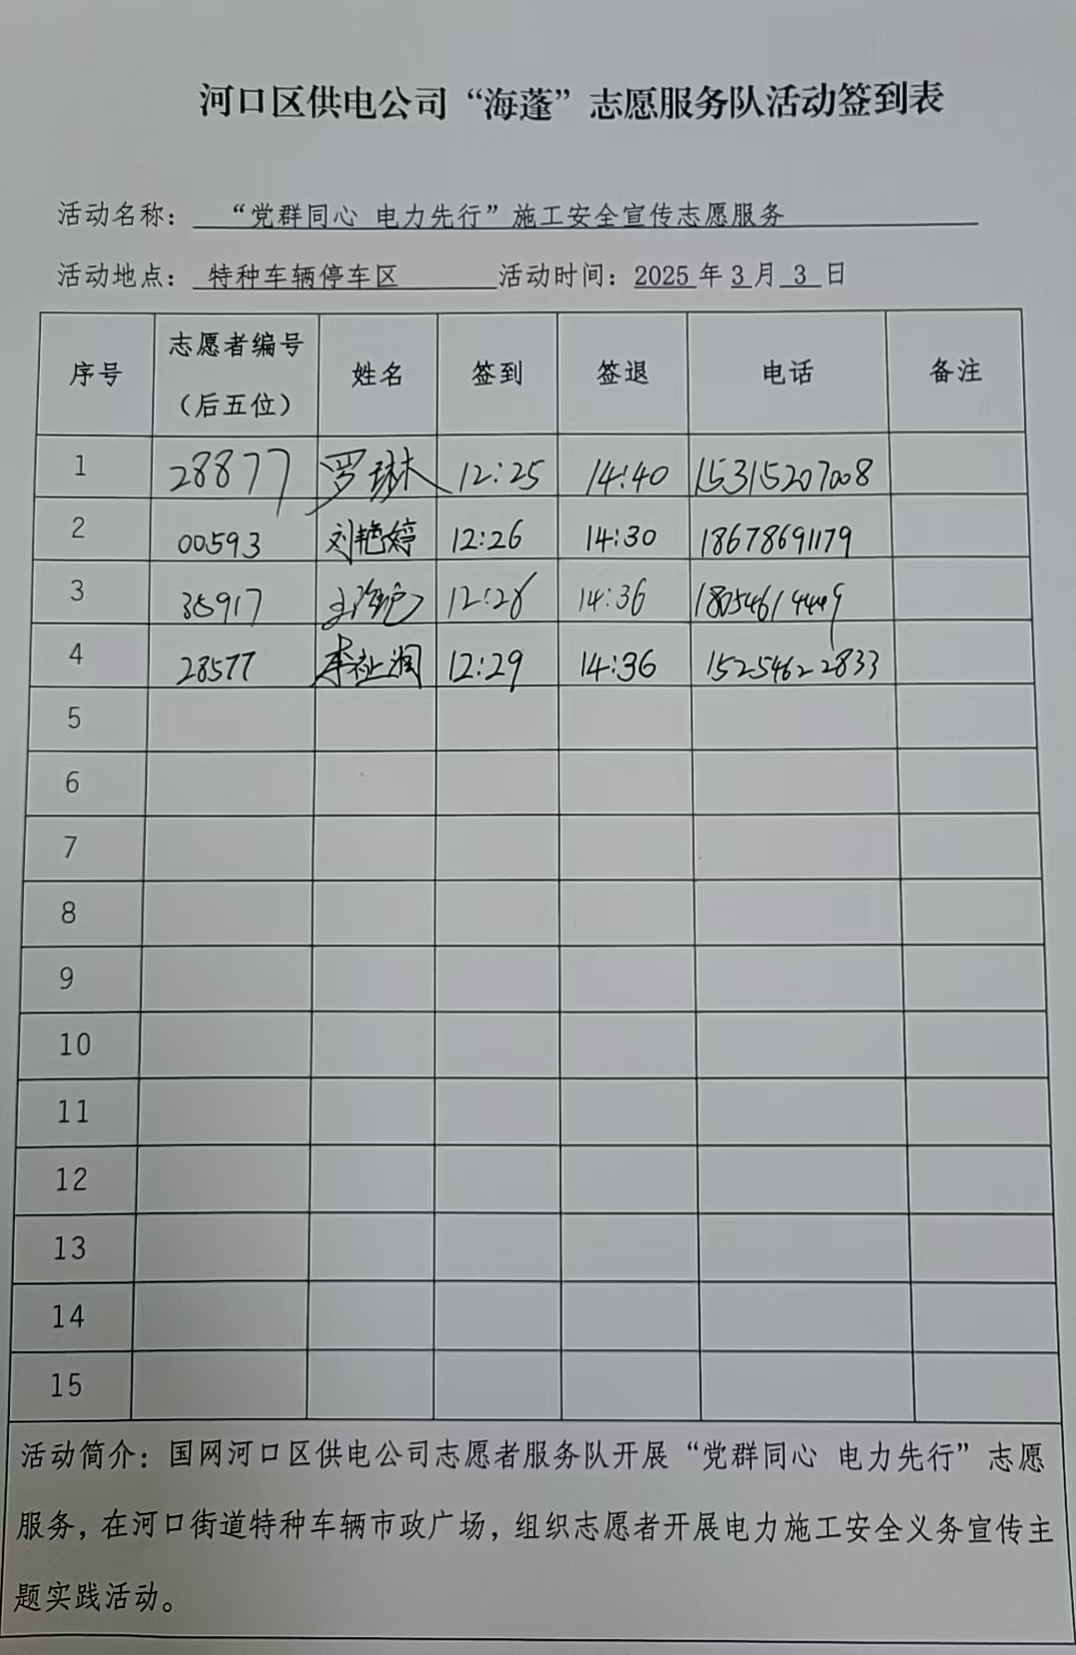 河口区供电公司“海蓬”志愿服务队活动签到表
活动名称： “党群同心 电力先行”施工安全宣传志愿服务
活动地点： 特种车辆停车区 活动时间：2025 年 3 月 3 日
序号 志愿者编号（后五位） 姓名 签到 签退 电话 备注
1 28877 罗琳 12:25 14:40 15315207008
2 00593 刘艳婷 12:26 14:30 18678691179
3 35917 12:28 14:36
4 28577 李祉润 12:29 14:36 15254622833
5
6
7
8
9
10
11
12
13
14
15
活动简介：国网河口区供电公司志愿者服务队开展“党群同心 电力先行”志愿
服务，在河口街道特种车辆市政广场，组织志愿者开展电力施工安全义务宣传主
题实践活动。